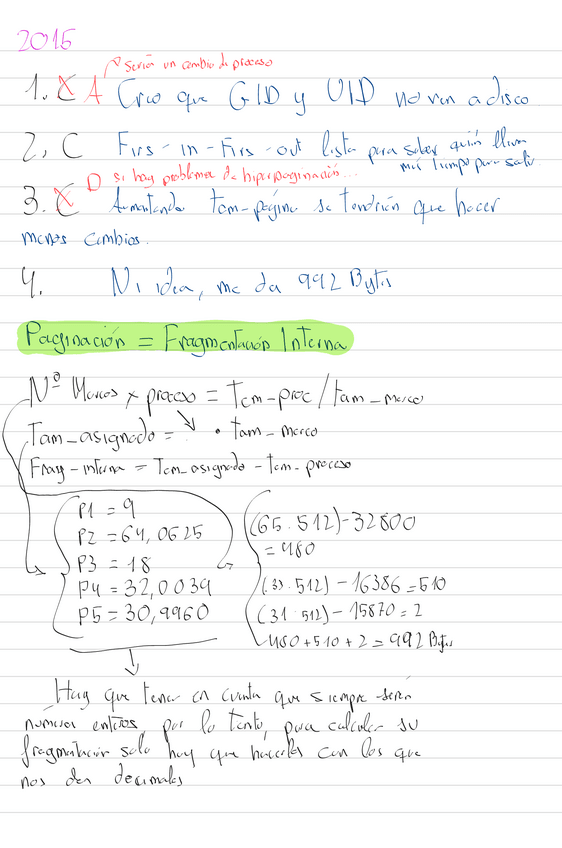 2015
↗ Serían un cambio de proceso
1. C A Creo que GID y UID no van a disco
2. C Firs-in-Firs-out lista para saber quién lleva
más tiempo para salir
D si hay problemas de hiperpaginación...
3. C Aumentando tam-página se tendrían que hacer
menos cambios.
4. Ni idea, me da 992 Bytes
Paginación = Fragmentación Interna
Nº Marcos x proceso = Tam-proc / tam_marco
Tam_asignado = · tam_marco
Frag-interna = Tam_asignado - tam_proceso
P1 = 9
P2 = 64,0625
P3 = 18
P4 = 32,0039
P5 = 30,9960
(65·512)-32800
= 480
(33·512) - 16386 = 510
(31·512) - 15870 = 2
480 + 510 + 2 = 992 Bytes
Hay que tener en cuenta que siempre serán
números enteros por lo tanto, para calcular su
fragmentación solo hay que hacerlos con los que
nos den decimales